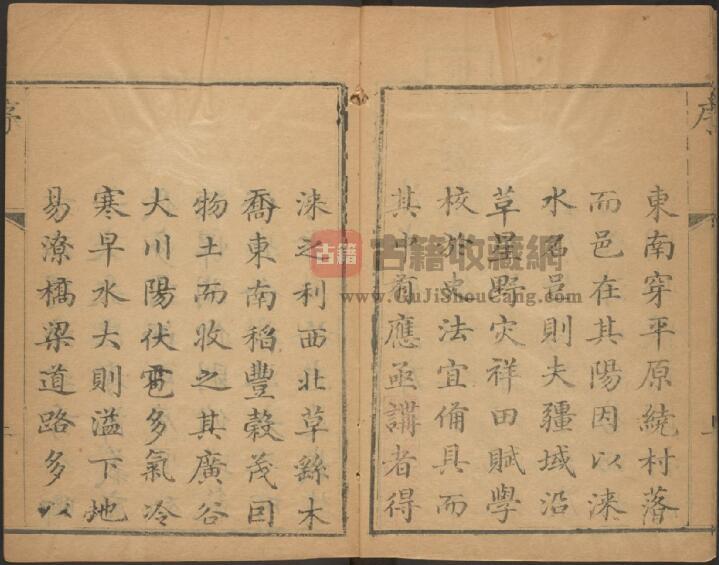 序
東南穿平原繞村落
而邑在其陽因以淶
水名邑則夫疆域沿
革星野灾祥田賦學
校於史法宜俻具而
其中有應亟講者得
淶之利西北草繇木
喬東南稻豐穀茂囙
物土而收之其廣谷
大川陽伏雹多氣冷
寒早水大則溢下地
易潦橋梁道路多以
序
古籍
古籍收藏網
www.GuJiShouCang.com